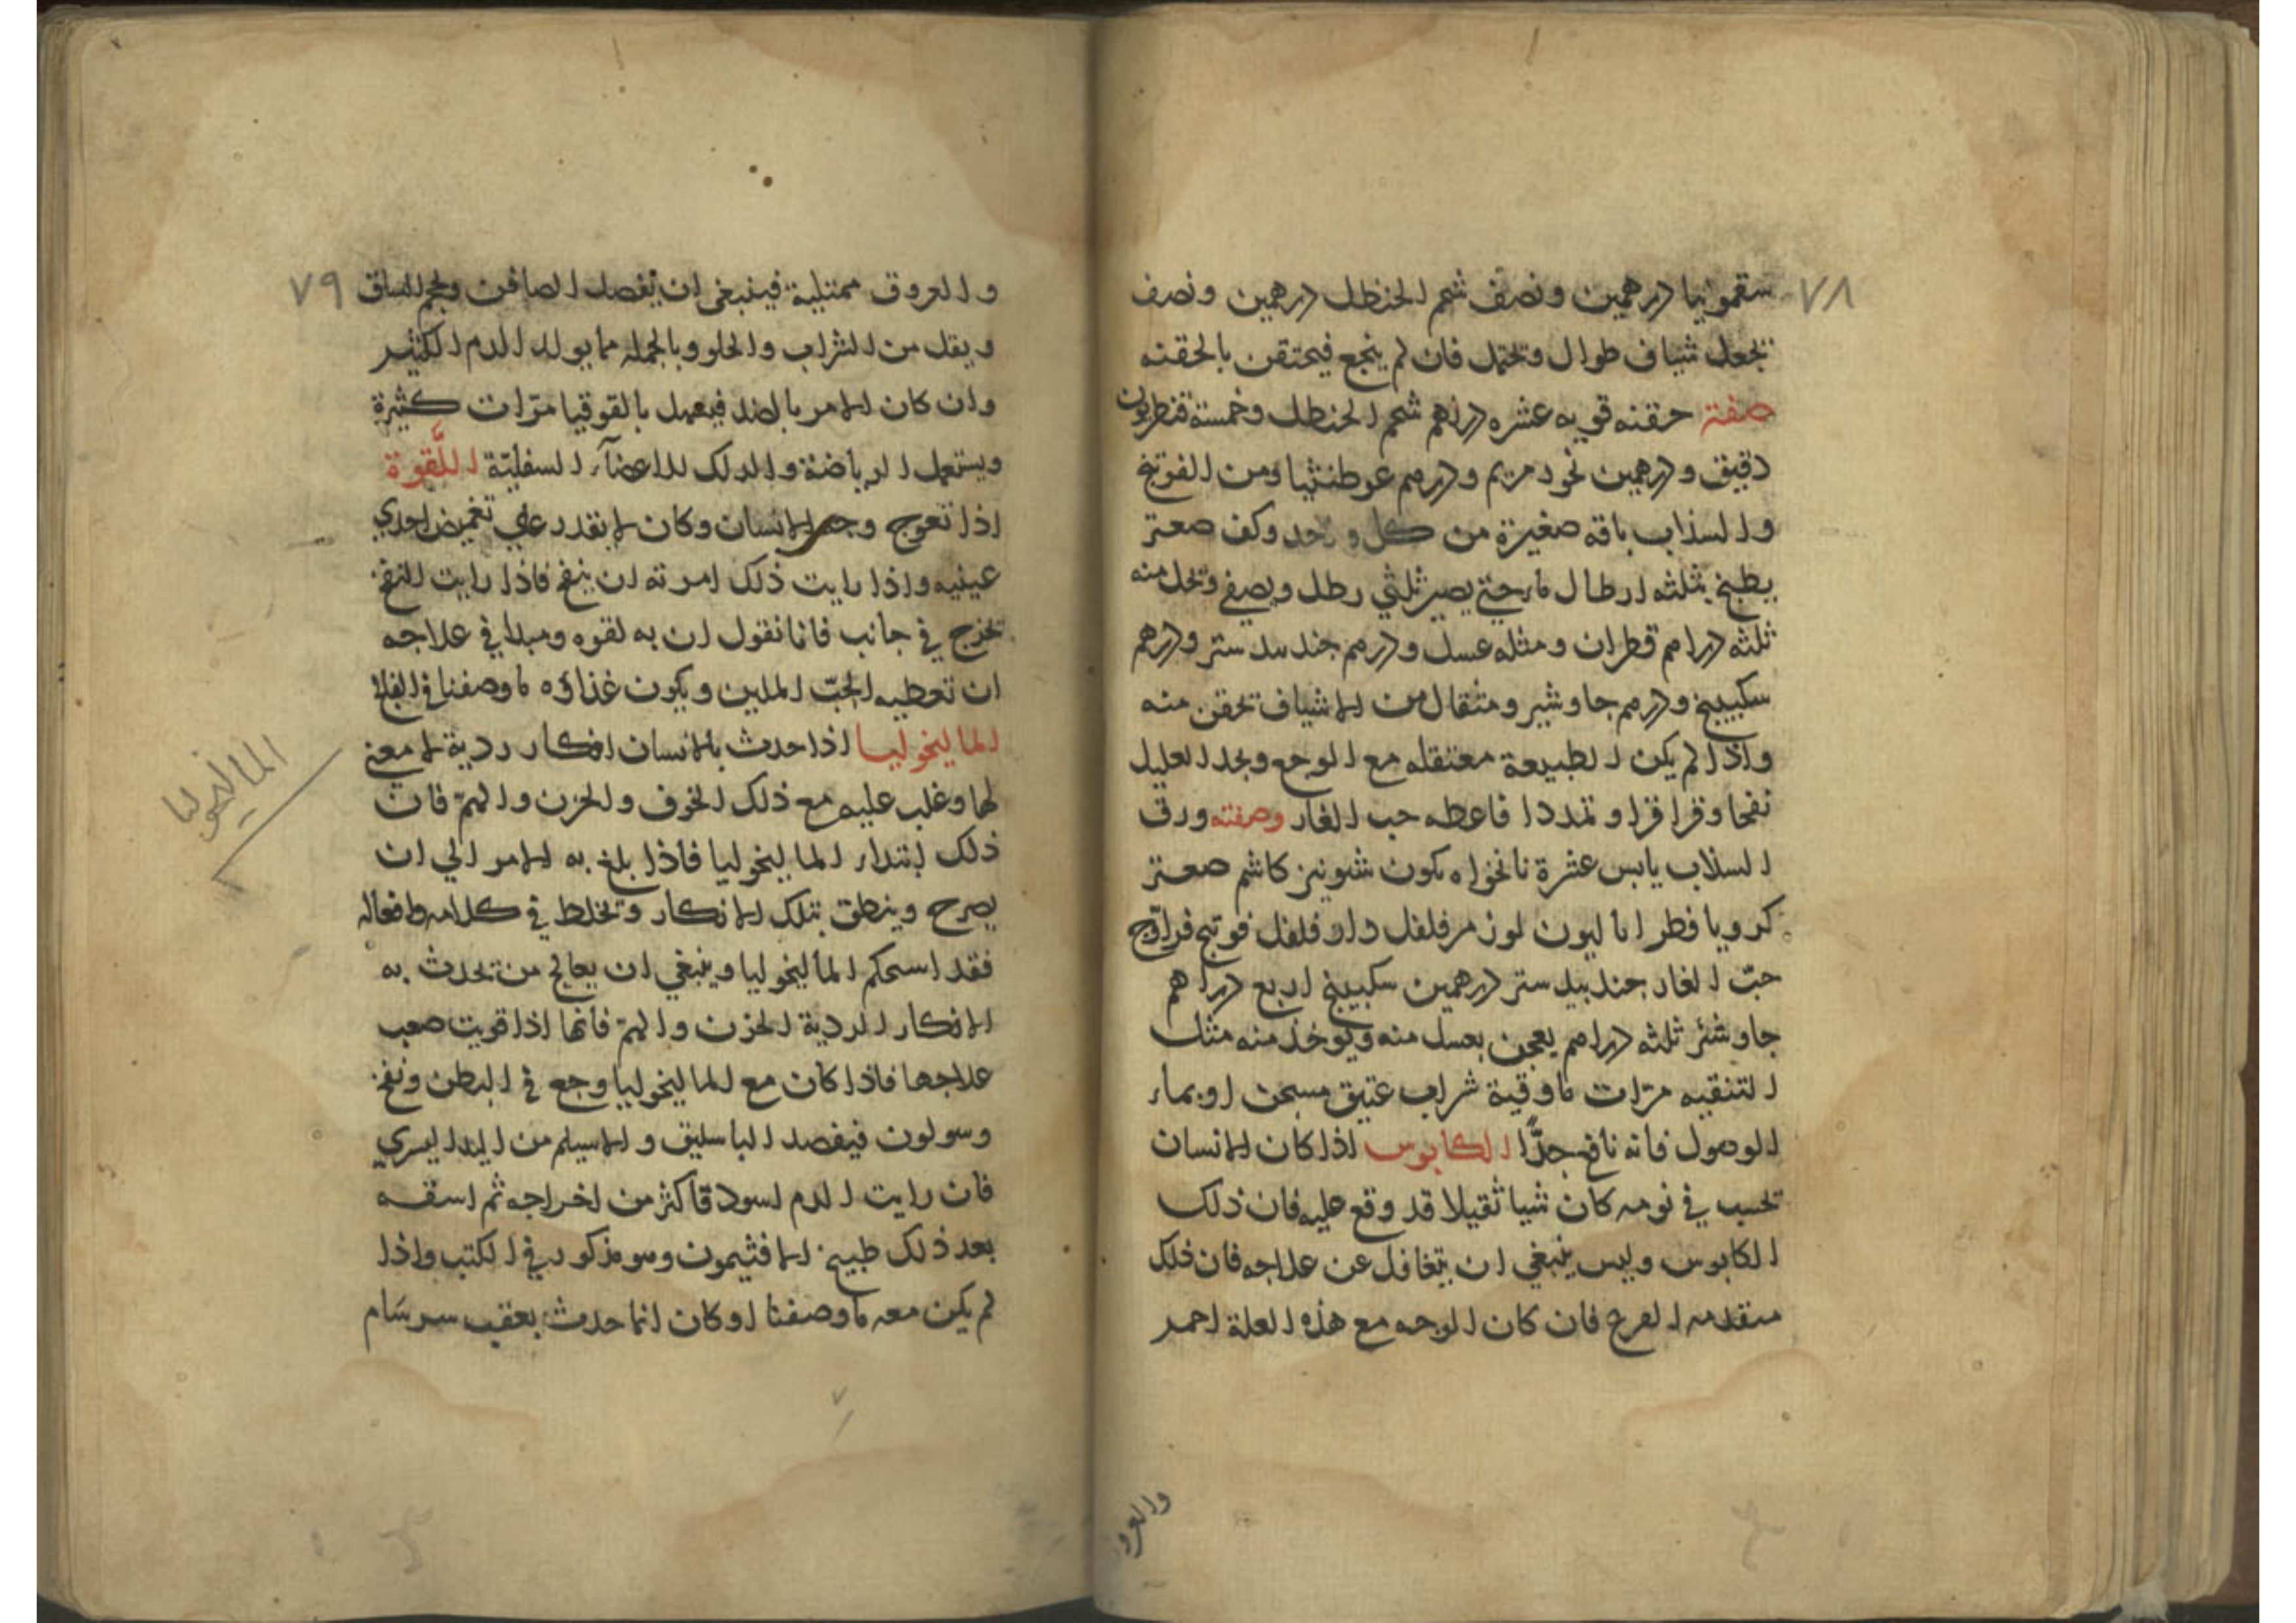 ٧٨
سقمونيا درهمين ونصف شحم الحنظل درهمين ونصف
تجعل شياف طوال وتحتمل فان لم ينجع فيحتقن بالحقنه
صفة حقنه قويه عشره دراهم شحم الحنظل وخمسة قنطريون
دقيق ودرهمين بخور مريم ودرهم عرطنيثا ومن الفوتنج
والسذاب باقه صغيرة من كل واحد وكف صعتر
يطبخ بثلثه ارطال ماء حتي يصير ثلثي رطل ويصفي وتحل منه
ثلثه دراهم قطران ومثله عسل ودرهم جند بيد ستر ودرهم
سكبينج ودرهم جاوشير ومثقال من الاشياف تحقن منه
واذا لم يكن الطبيعة معتقله مع الوجع ويجد العليل
نفخا وقراقرا وتمددا فاعطه حب الغار وصفته ورق
السذاب يابس عشرة نانخواه كمون شونيز كاشم صعتر
كرويا فطراساليون لوز مر فلفل دار فلفل فوتنج
حبّ الغار جند بيد ستر درهمين سكبينج اربع دراهم
جاوشير ثلثه دراهم يعجن بعسل منه ويوخذ منه مثل
التنقيه مرّات باوقية شراب عتيق مسخن او بماء
الاصول فانه نافع جدًّا الكابوس اذا كان الانسان
تحسب في نومه كان شيا ثقيلا قد وقع عليه فان ذلك
الكابوس وليس ينبغي ان يتغافل عن علاجه فان ذلك
مقدمه الصرع فان كان الوجه مع هذه العلة احمر
والعرو
٧٩
والعروق ممتلية فينبغي ان يفصد الصافن ويحجم الساق
ويقلل من الشراب والحلو وبالجمله مما يولد الدم الكثير
وان كان الامر بالضد فيعمل بالقوقيا مرّات كثيرة
ويستعمل الرياضة والدلك للاعضآء السفليّة اللَّقوة
اذا تعوج وجه الانسان وكان لا يقدر علي تغميض احدي
عينيه واذا رايت ذلك امرته ان ينفخ فاذا رايت النفخ
تخرج في جانب فانا نقول ان به لقوه ومبدا في علاجه
ان تعطيه الحبّ الملين ويكون غذاؤه ما وصفنا في الفالج
الماليخوليا اذا حدث بالانسان افكار ردية لا معني
لها وغلب عليه مع ذلك الخوف والحزن والهمّ فان
ذلك ابتداء الماليخوليا فاذا بلغ به الامر الي ان
يصرح وينطق بتلك الافكار وتخلط في كلامه وافعاله
فقد استحكم الماليخوليا وينبغي ان يعالج من تحدث به
الافكار الردية الحزن والهمّ فانها اذا قويت صعب
علاجها فاذا كان مع الماليخوليا وجع في البطن ونفخ
وسو لون فيفصد الباسليق والاسيلم من اليد اليسري
فان رايت الدم اسود فاكثر من اخراجه ثم اسقه
بعد ذلك طبيخ الافثيمون وهو مذكور في الكتب واذا
لم يكن معه ما وصفنا او كان انما حدث بعقب سرسَام
الماليخوليا